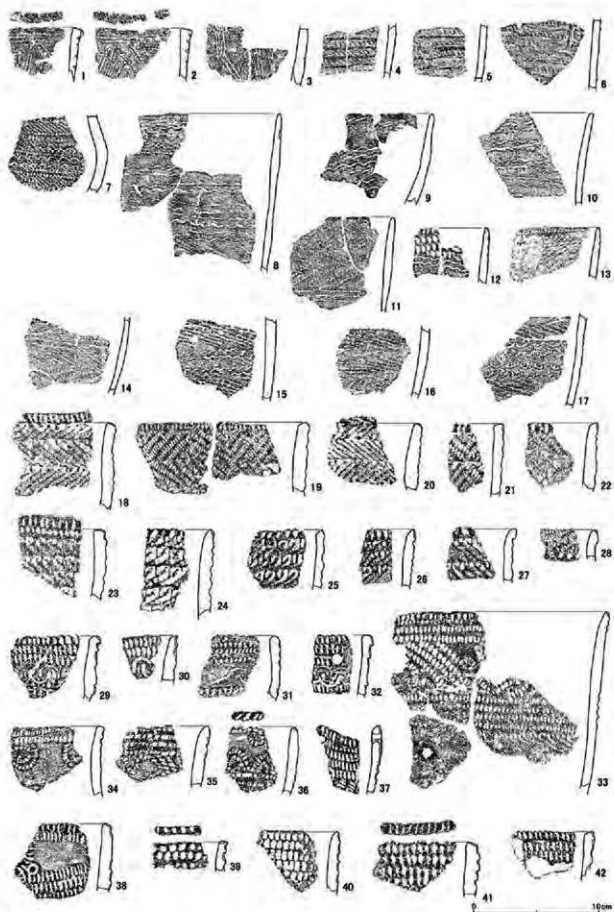 1 2 3 4 5 6
7 8 9 10
11 12 13
14 15 16 17
18 19 20 21 22
23 24 25 26 27 28
29 30 31 32 33
34 35 36 37
38 39 40 41 42
0 10cm